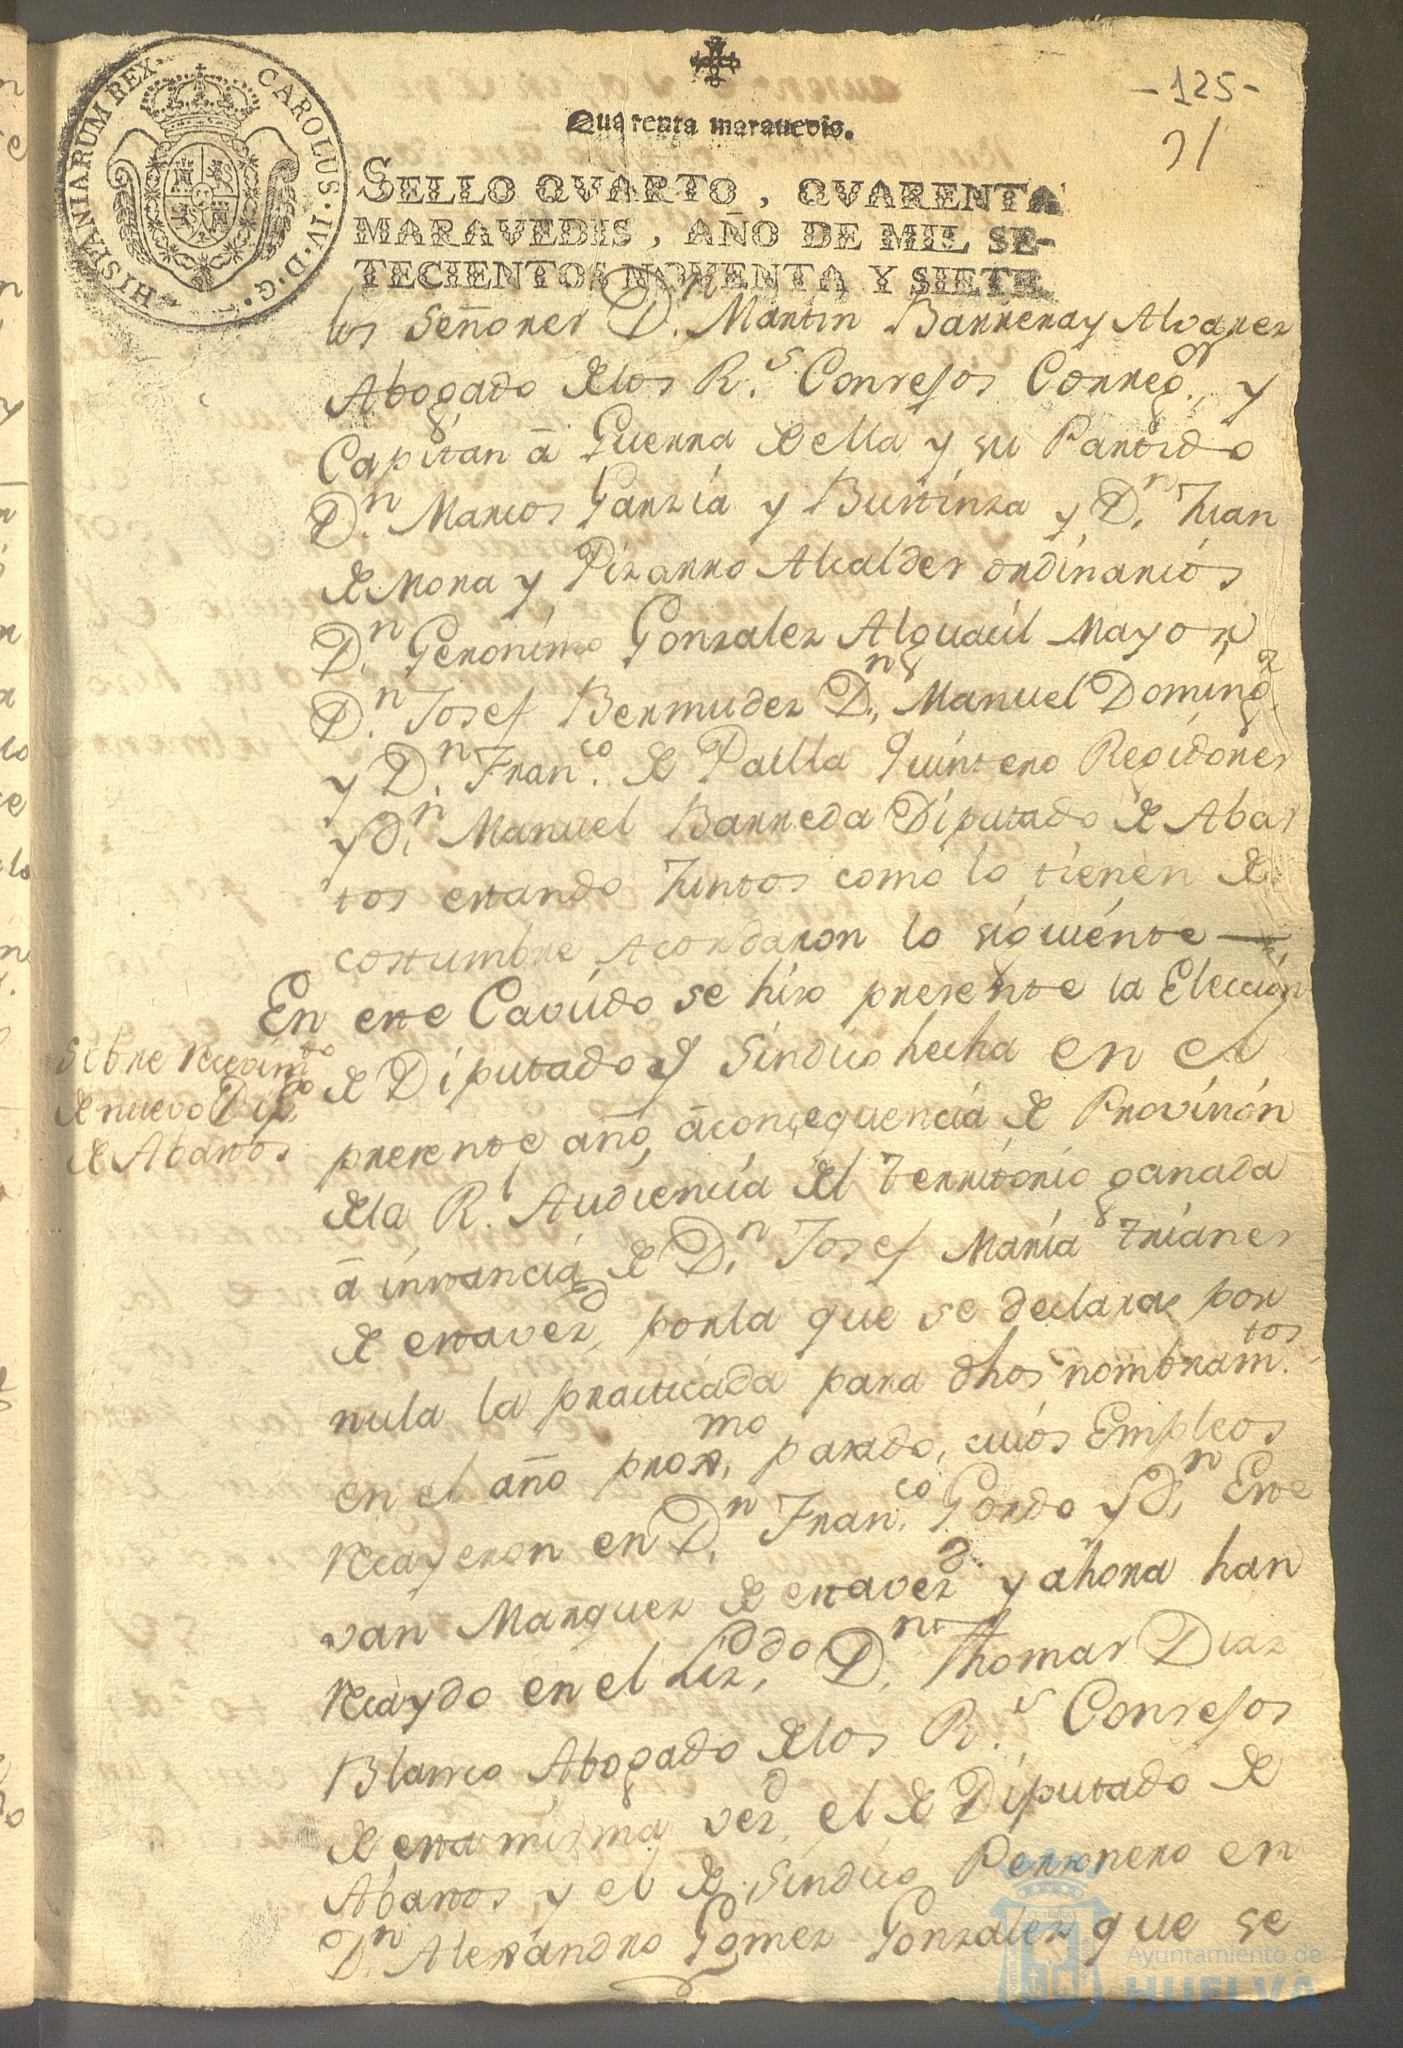 HISPANIARUM REX. CAROLUS. IV. D. G.
Quarenta marauedis.
-125-
SELLO QVARTO, QVARENTA
MARAVEDIS, AÑO DE MIL SE-
TECIENTOS NOVENTA Y SIETE.
los Señores D.n Martin Barreray Alvarez
Abogado delos R.s Consejos Correg.or, y
Capitan â Guerra de ella y su Partido
D.n Marcos Garzia y Bustinza y D.n Juan
de Mora y Pizarro Alcaldes ordinarios
D.n Geronimo Gonzalez Alguacil Mayor,
D.n Josef Bermudez D.n Manuel Doming.z
y D.n Fran.co de Paula Quintero Regidores
y d.n Manuel Barreda Diputado de Abas
tos estando Juntos como lo tienen de
costumbre Acordaron lo siguiente
En este Cavildo se hizo presente la Eleccion
Sobre recivim.to
de nuevo Dip.do
de Abastos
de Diputado y Sindico hecha en el
presente año, âconsequencia de Provision
dela R. Audiencia del territorio ganada
â instancia de D.n Josef Maria trianes
de estavez.d, porla que se declara por
nula la practicada para dhos nombram.tos
en el año prox.mo pasado, cuios Empleos
recayeron en D.n Fran.co Gordo y d.n Este
van Marquez de estavez.d y ahora han
recaydo en el Liz.do D.n Thomas Diaz
Blanco Abogado delos R.s Consejos
de esta misma vez.d el de Diputado de
Abastos, y el de Sindico Personero en
D.n Alexandro Gomez Gonzalez que se
Ayuntamiento de
HUELVA